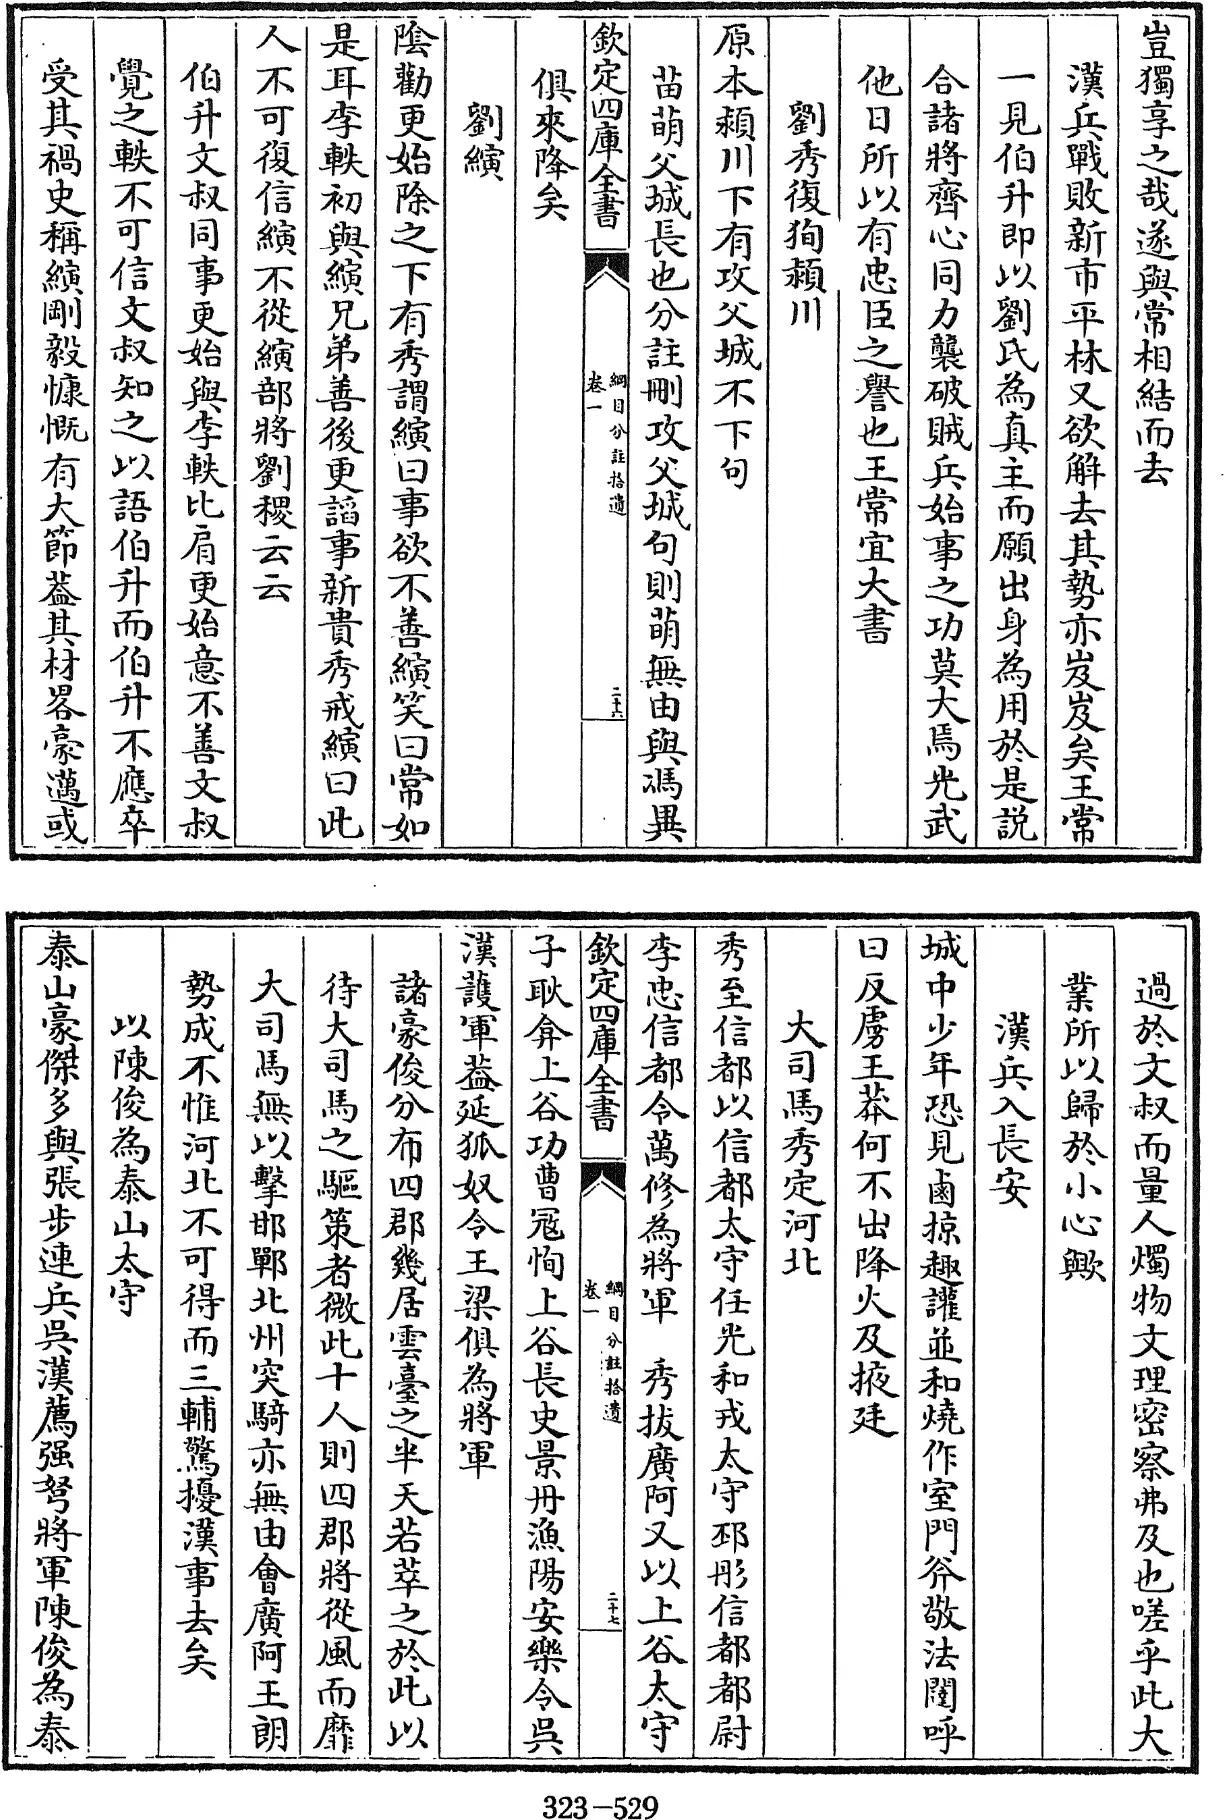 豈獨享之哉遂與常相結而去
漢兵戰敗新市平林又欲解去其勢亦岌岌矣王常
一見伯升即以劉氏為真主而願出身為用於是説
合諸將齊心同力襲破賊兵始事之功莫大焉光武
他日所以有忠臣之譽也王常宜大書
劉秀復徇潁川
原本潁川下有攻父城不下句
苗萌父城長也分註刪攻父城句則萌無由與馮異
欽定四庫全書
綱目分註拾遺
卷一
二十六
俱來降矣
劉縯
陰勸更始除之下有秀謂縯曰事欲不善縯笑曰常如
是耳李軼初與縯兄弟善後更謟事新貴秀戒縯曰此
人不可復信縯不從縯部將劉稷云云
伯升文叔同事更始與李軼比肩更始意不善文叔
覺之軼不可信文叔知之以語伯升而伯升不應卒
受其禍史稱縯剛毅慷慨有大節葢其材畧豪邁或
過於文叔而量人燭物文理密察弗及也嗟乎此大
業所以歸於小心歟
漢兵入長安
城中少年恐見鹵掠趣讙並和燒作室門斧敬法闥呼
曰反虜王莽何不出降火及掖廷
大司馬秀定河北
秀至信都以信都太守任光和戎太守邳彤信都都尉
李忠信都令萬修為將軍　秀拔廣阿又以上谷太守
欽定四庫全書
綱目分註拾遺
卷一
二十七
子耿弇上谷功曹冦恂上谷長史景丹漁陽安樂令吳
漢護軍葢延狐奴令王梁俱為將軍
諸豪俊分布四郡幾居雲臺之半天若萃之於此以
待大司馬之驅策者微此十人則四郡將從風而靡
大司馬無以擊邯鄲北州突騎亦無由會廣阿王朗
勢成不惟河北不可得而三輔驚擾漢事去矣
以陳俊為泰山太守
泰山豪傑多與張步連兵吳漢薦强弩將軍陳俊為泰
323-529